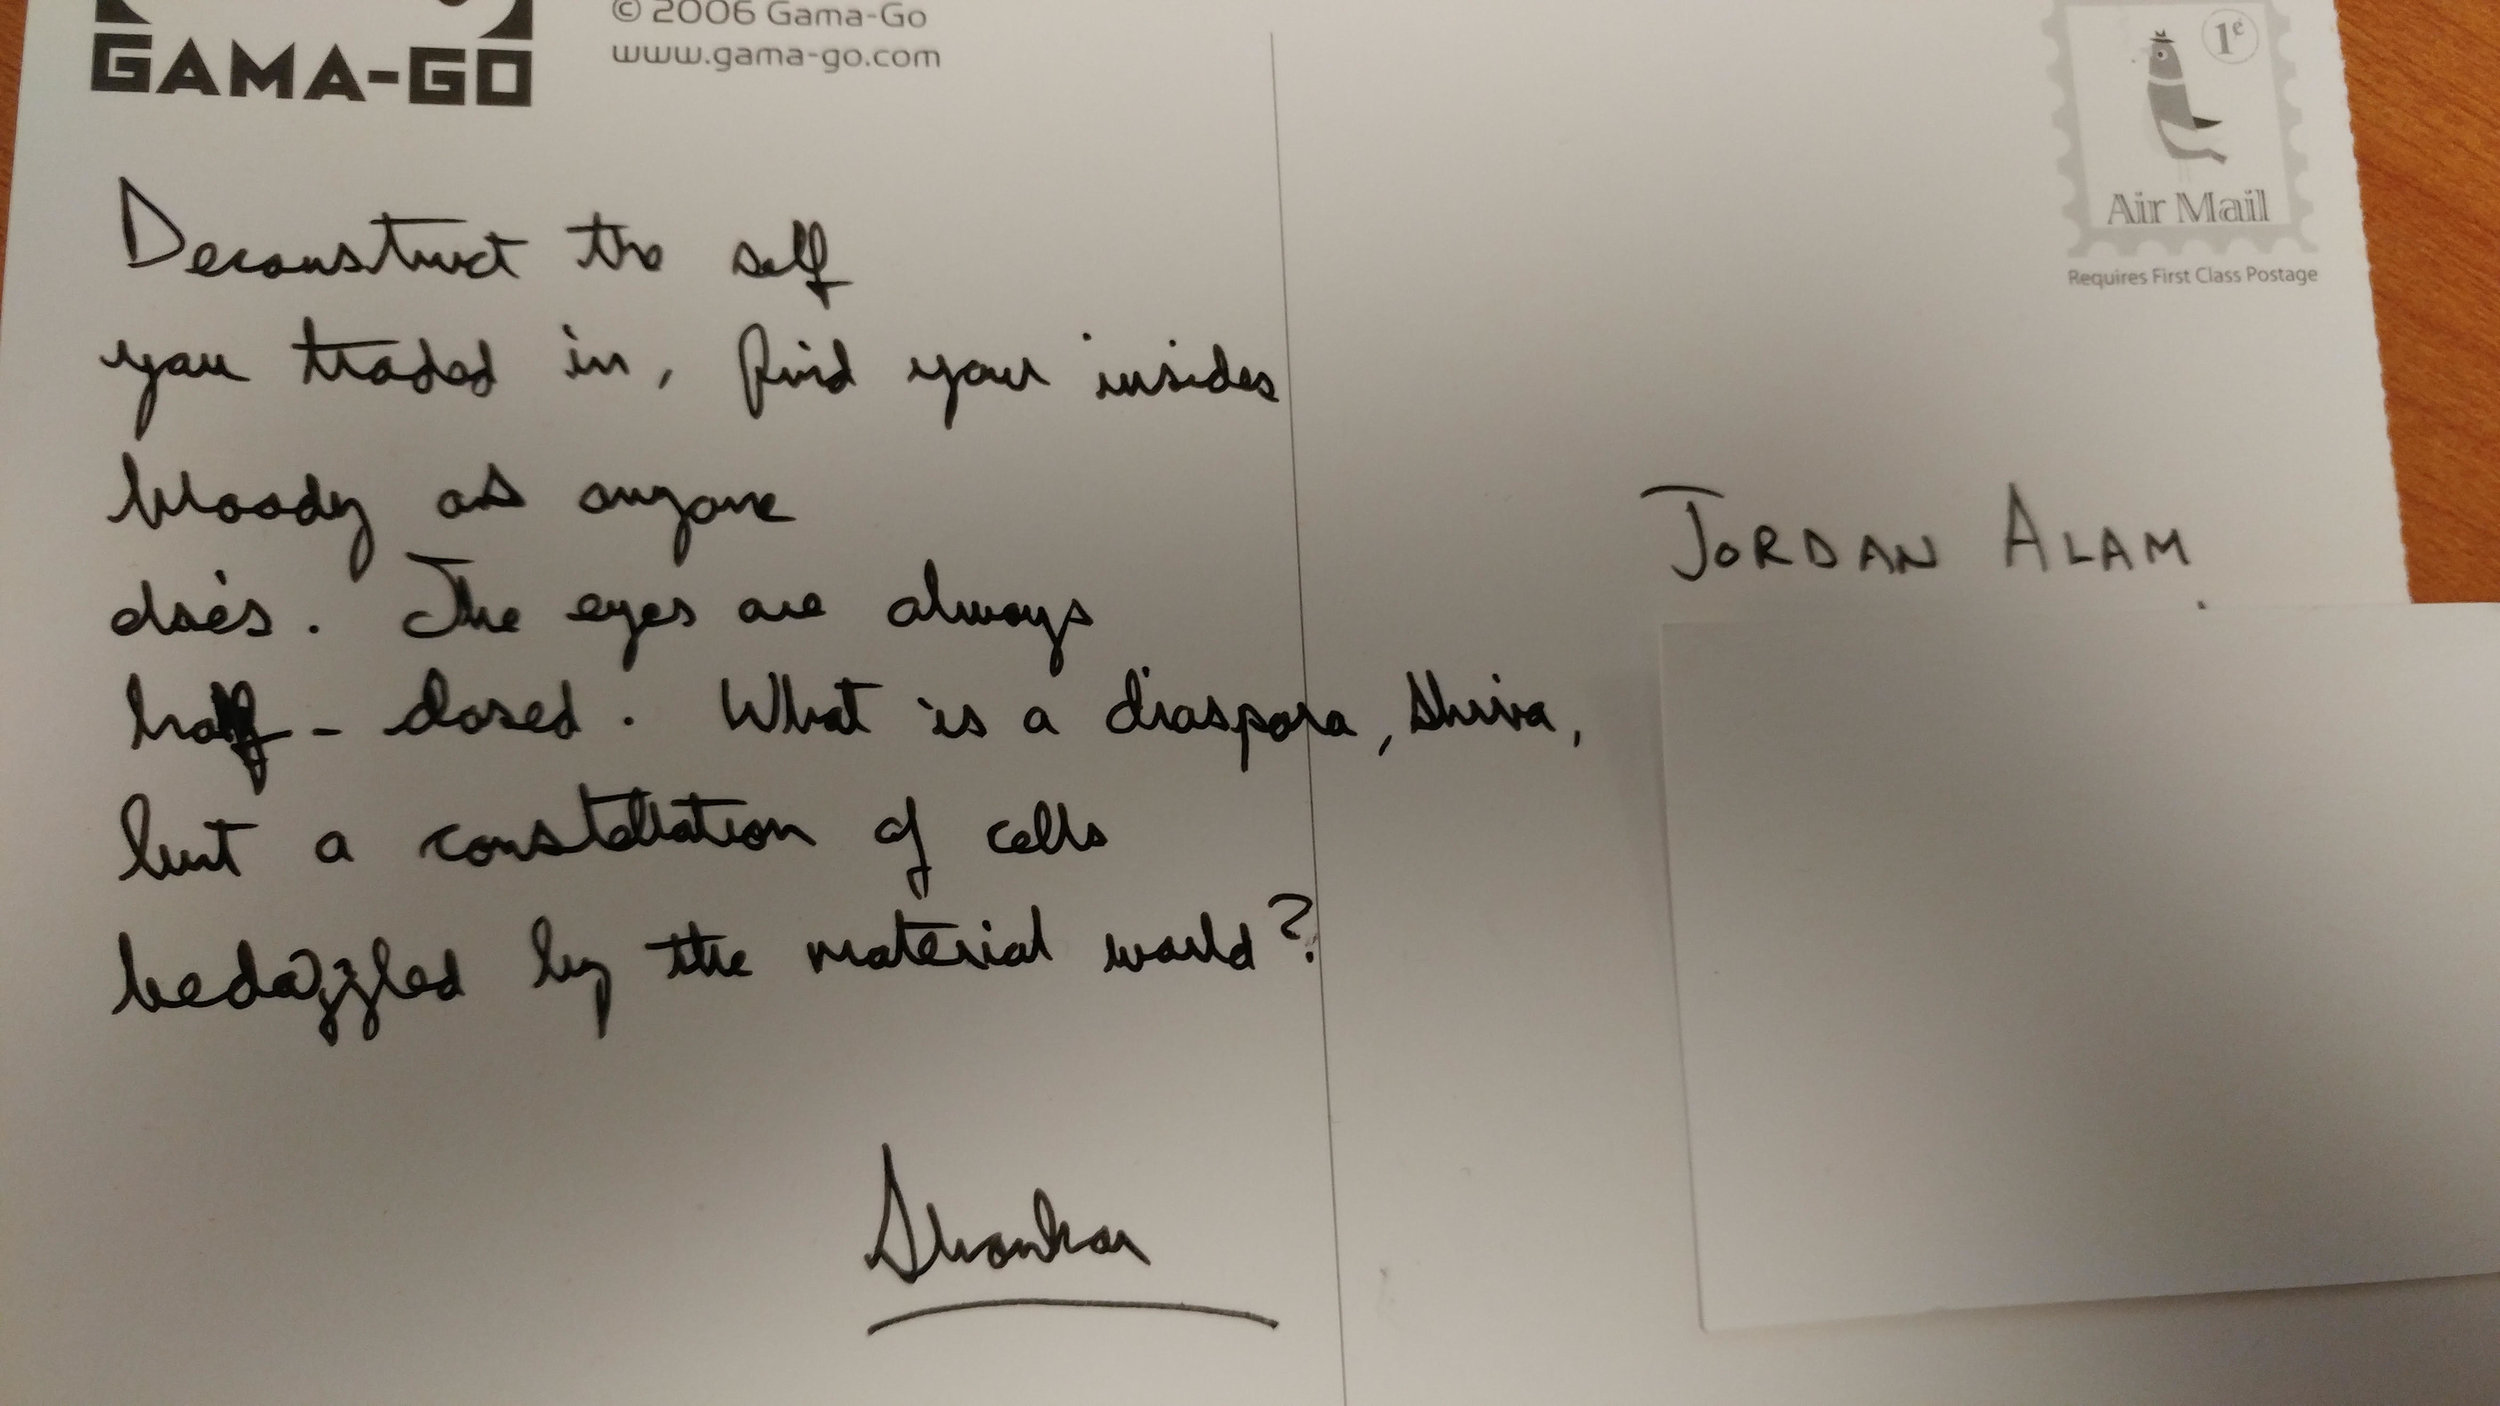 GAMA-GO
© 2006 Gama-Go
www.gama-go.com
1¢
Air Mail
Requires First Class Postage
Deconstruct the self
you traded in, find your insides
bloody as anyone
else's. The eyes are always
half-closed. What is a diaspora, Shiva,
but a constellation of cells
bedazzled by the material world?
Shankar
JORDAN ALAM